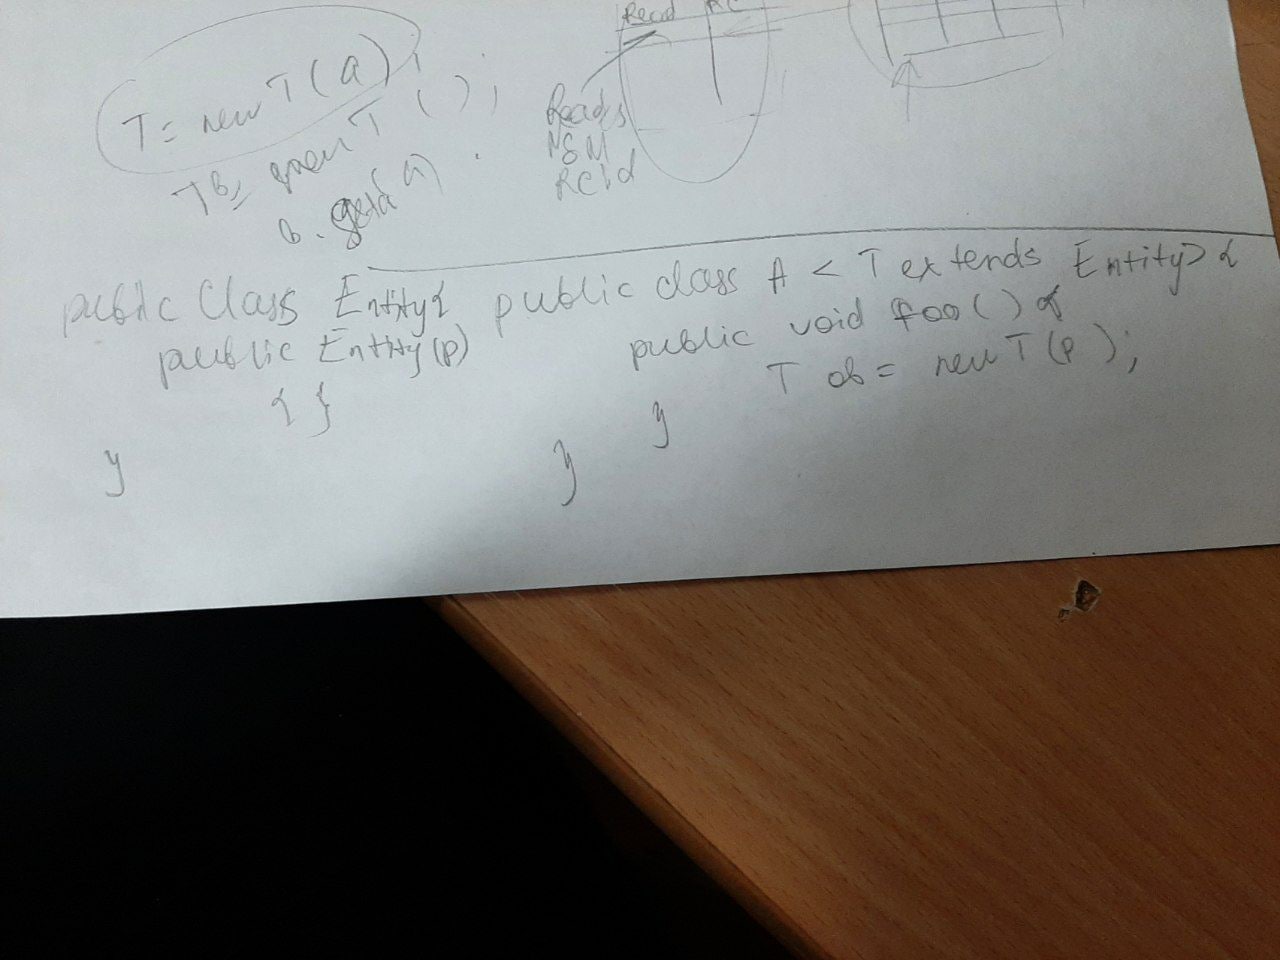 T = new T(a);
T b = new T();
b.
Read
Reads
NSM
RCId
public Class Entity{
public Entity(p)
{ }
}
public class A < T extends Entity> {
public void foo() {
T ob = new T(p);
}
}